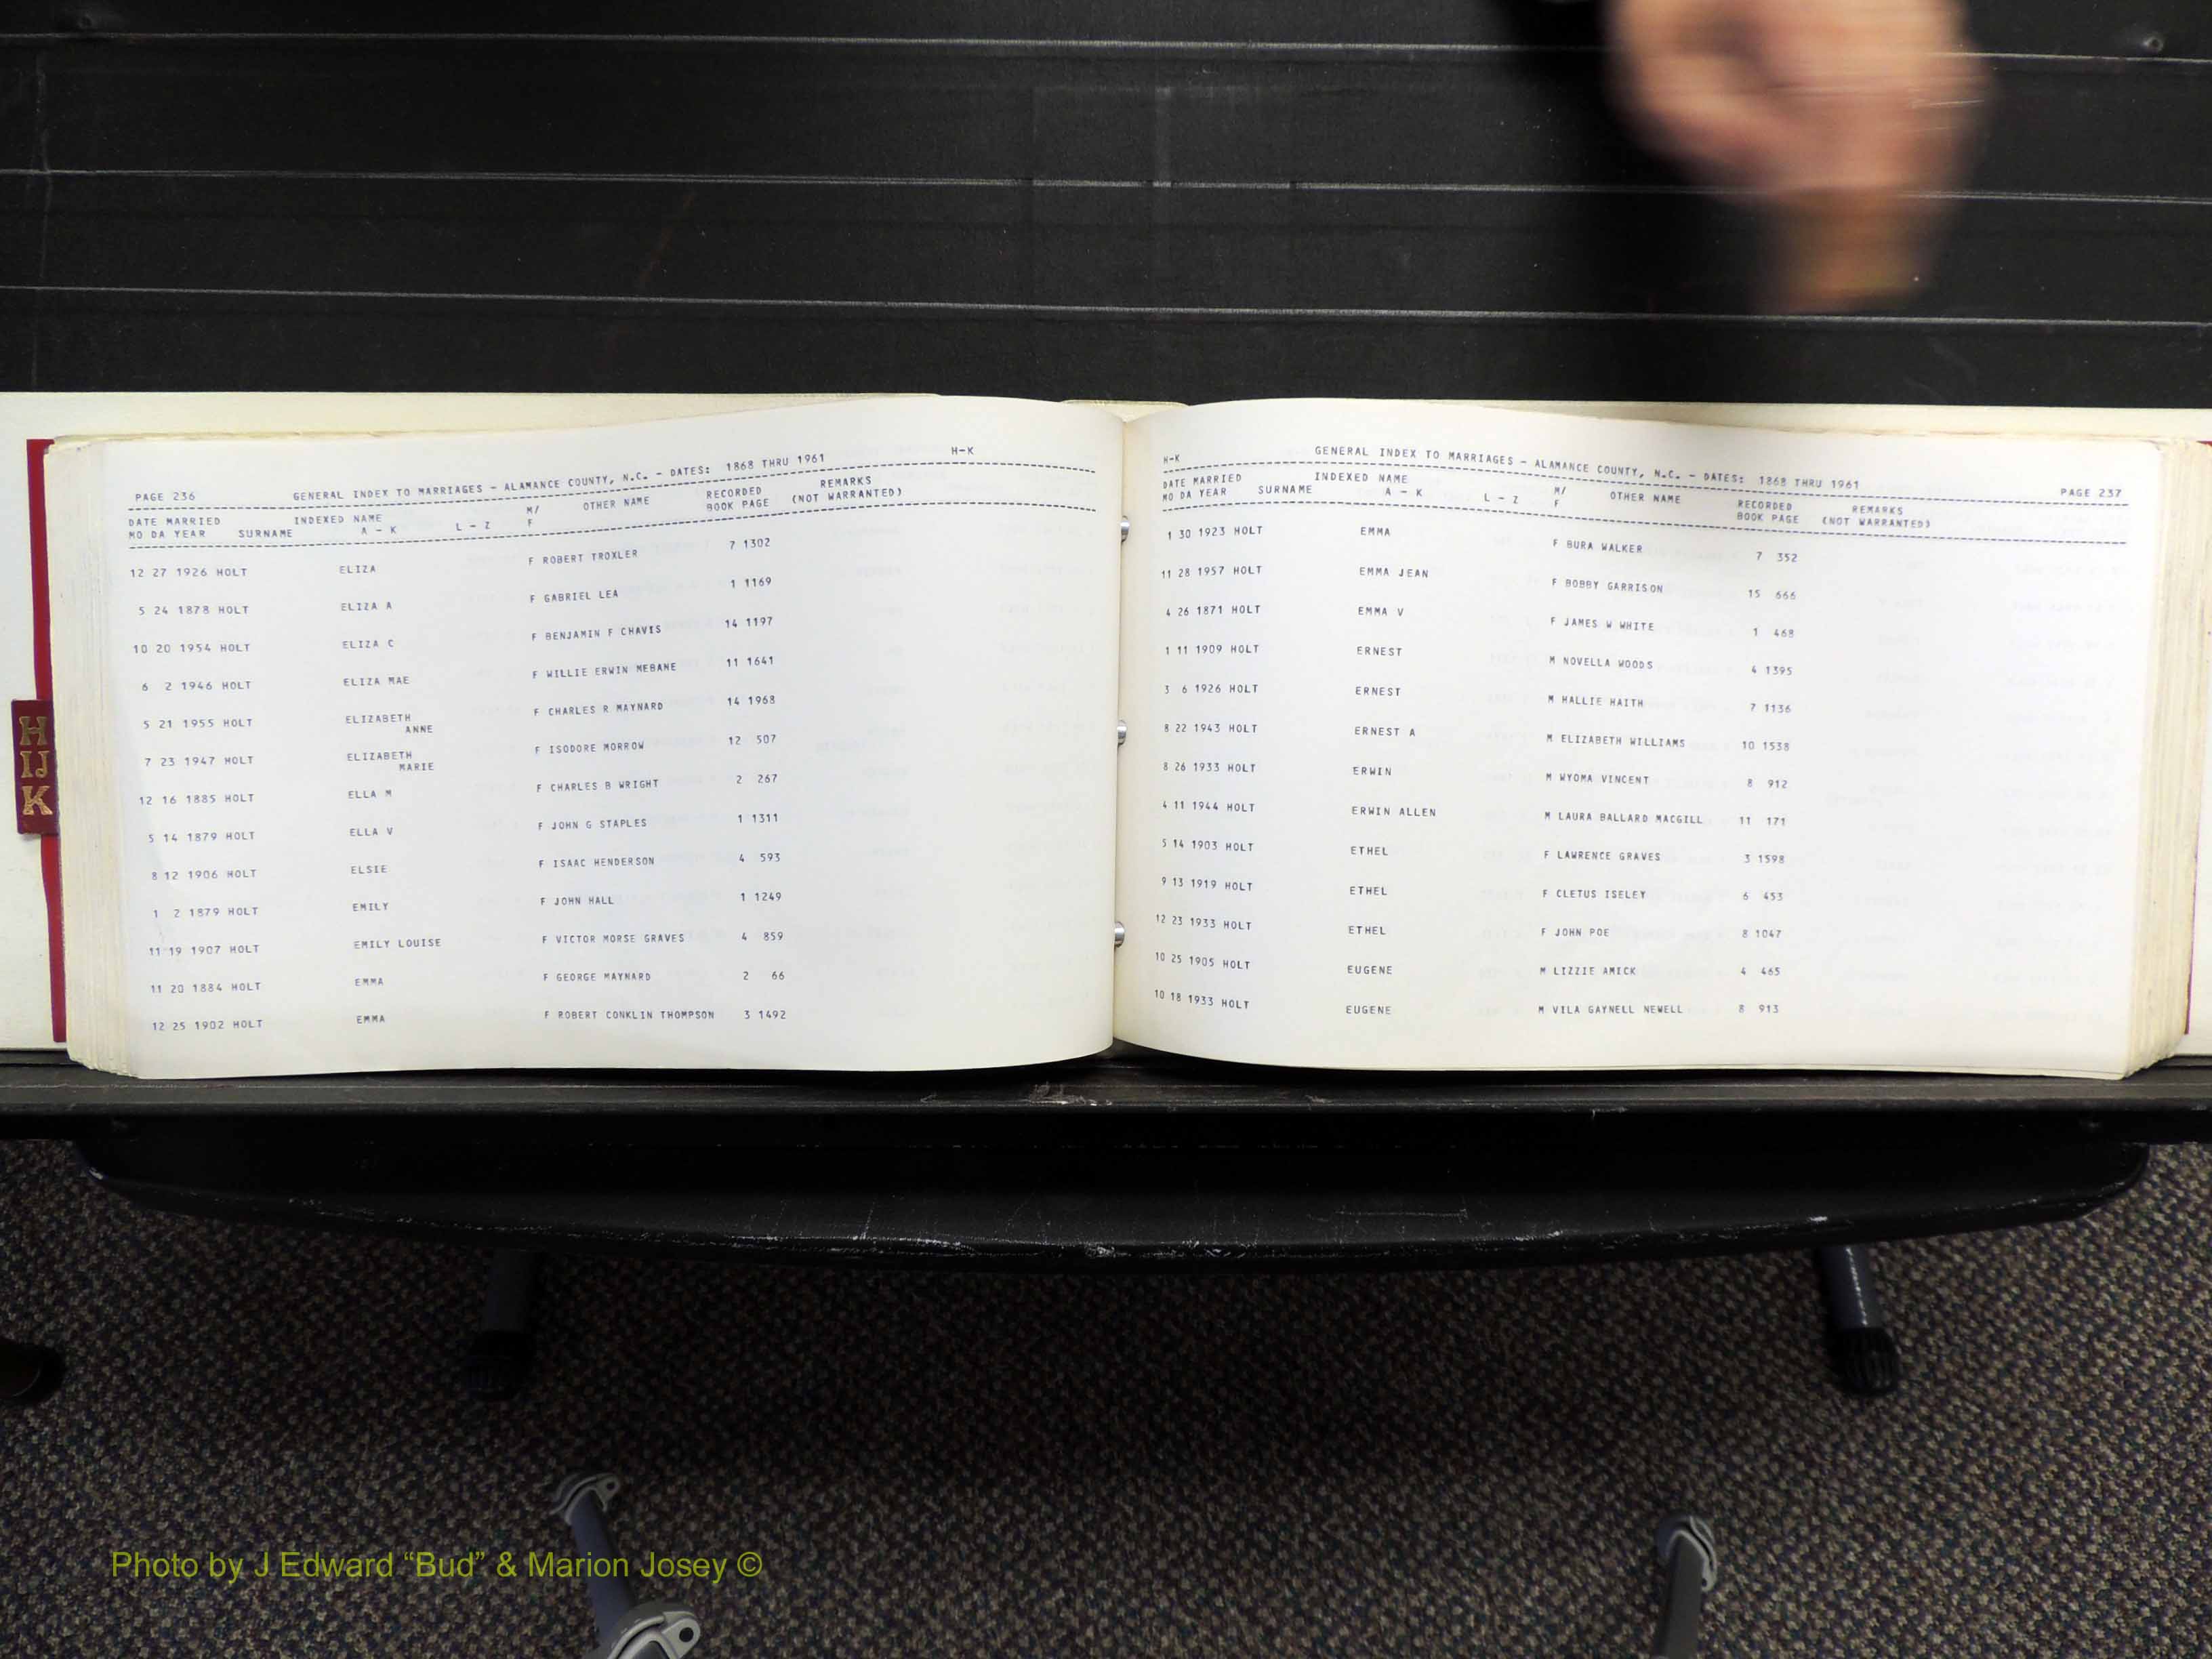 PAGE 236 GENERAL INDEX TO MARRIAGES - ALAMANCE COUNTY, N.C. - DATES: 1868 THRU 1961 H-K
DATE MARRIED INDEXED NAME M/ OTHER NAME RECORDED REMARKS
MO DA YEAR SURNAME A - K L - Z F BOOK PAGE (NOT WARRANTED)
12 27 1926 HOLT ELIZA F ROBERT TROXLER 7 1302
5 24 1878 HOLT ELIZA A F GABRIEL LEA 1 1169
10 20 1954 HOLT ELIZA C F BENJAMIN F CHAVIS 14 1197
6 2 1946 HOLT ELIZA MAE F WILLIE ERWIN MEBANE 11 1641
5 21 1955 HOLT ELIZABETH F CHARLES R MAYNARD 14 1968
ANNE
7 23 1947 HOLT ELIZABETH F ISODORE MORROW 12 507
MARIE
12 16 1885 HOLT ELLA M F CHARLES B WRIGHT 2 267
5 14 1879 HOLT ELLA V F JOHN G STAPLES 1 1311
8 12 1906 HOLT ELSIE F ISAAC HENDERSON 4 593
1 2 1879 HOLT EMILY F JOHN HALL 1 1249
11 19 1907 HOLT EMILY LOUISE F VICTOR MORSE GRAVES 4 859
11 20 1884 HOLT EMMA F GEORGE MAYNARD 2 66
12 25 1902 HOLT EMMA F ROBERT CONKLIN THOMPSON 3 1492
H
IJ
K
H-K GENERAL INDEX TO MARRIAGES - ALAMANCE COUNTY, N.C. - DATES: 1868 THRU 1961 PAGE 237
DATE MARRIED INDEXED NAME M/ OTHER NAME RECORDED REMARKS
MO DA YEAR SURNAME A - K L - Z F BOOK PAGE (NOT WARRANTED)
1 30 1923 HOLT EMMA F BURA WALKER 7 352
11 28 1957 HOLT EMMA JEAN F BOBBY GARRISON 15 666
4 26 1871 HOLT EMMA V F JAMES W WHITE 1 468
1 11 1909 HOLT ERNEST M NOVELLA WOODS 4 1395
3 6 1926 HOLT ERNEST M HALLIE HAITH 7 1136
8 22 1943 HOLT ERNEST A M ELIZABETH WILLIAMS 10 1538
8 26 1933 HOLT ERWIN M WYOMA VINCENT 8 912
4 11 1944 HOLT ERWIN ALLEN M LAURA BALLARD MACGILL 11 171
5 14 1903 HOLT ETHEL F LAWRENCE GRAVES 3 1598
9 13 1919 HOLT ETHEL F CLETUS ISELEY 6 453
12 23 1933 HOLT ETHEL F JOHN POE 8 1047
10 25 1905 HOLT EUGENE M LIZZIE AMICK 4 465
10 18 1933 HOLT EUGENE M VILA GAYNELL NEWELL 8 913
Photo by J Edward “Bud” & Marion Josey ©